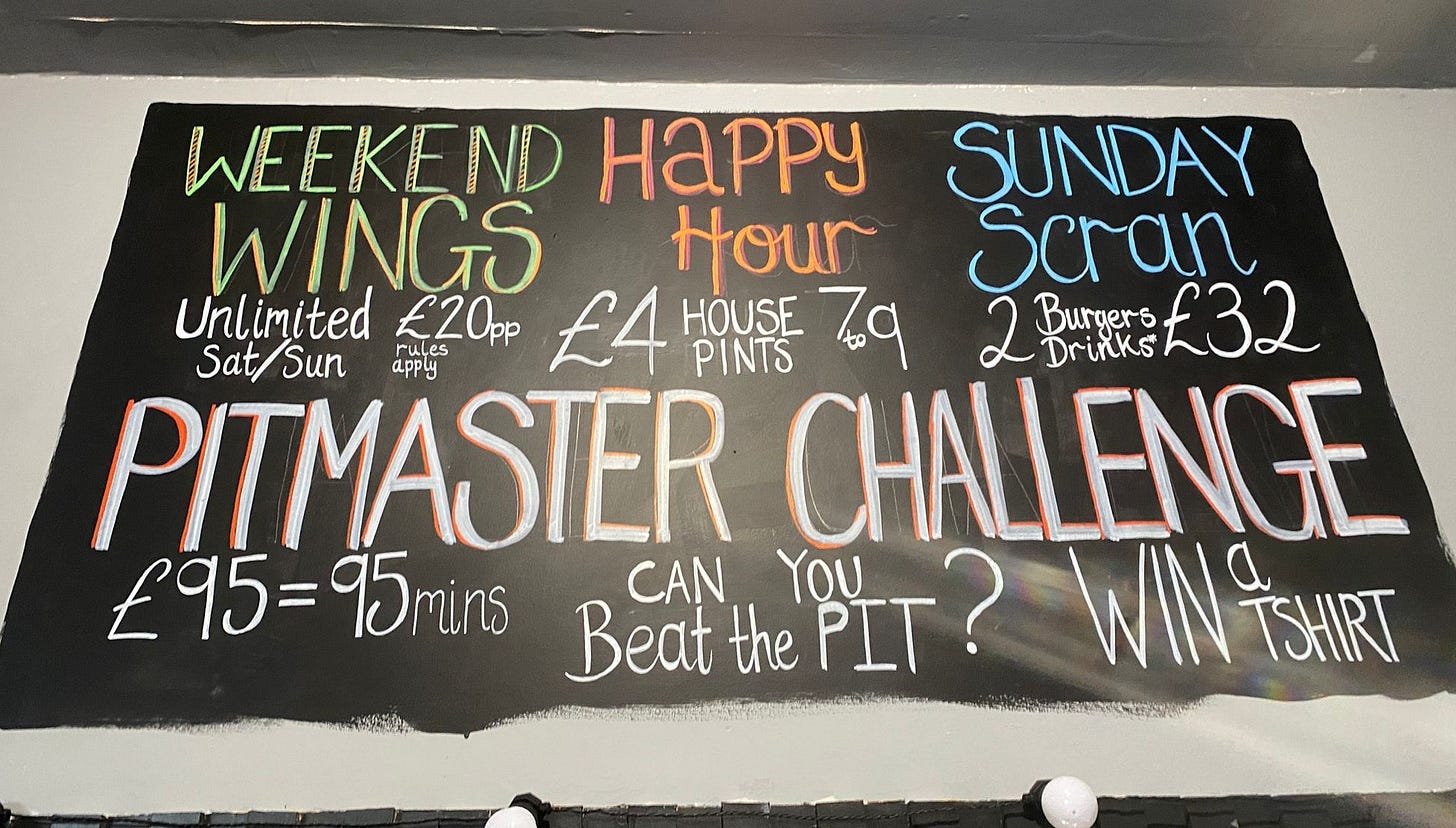 WEEKEND
WINGS
Unlimited £20pp
Sat/Sun rules
apply
Happy
Hour
£4 HOUSE PINTS 7 to 9
SUNDAY
Scran
2 Burgers Drinks* £32
PITMASTER CHALLENGE
£95 = 95 mins
CAN YOU
Beat the PIT ?
WIN a
TSHIRT